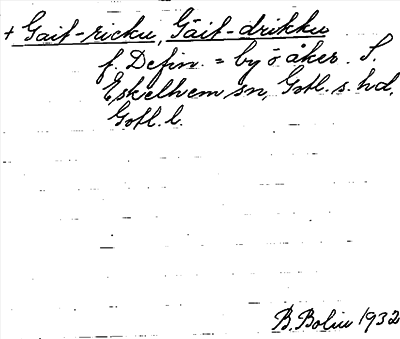 + Gait-ricku, Gäit-drikku
f. Defin. = by ö åker. S.
Eskelhem sn, Gotl. s. hd.
Gotl. l.
B. Bolin 1932